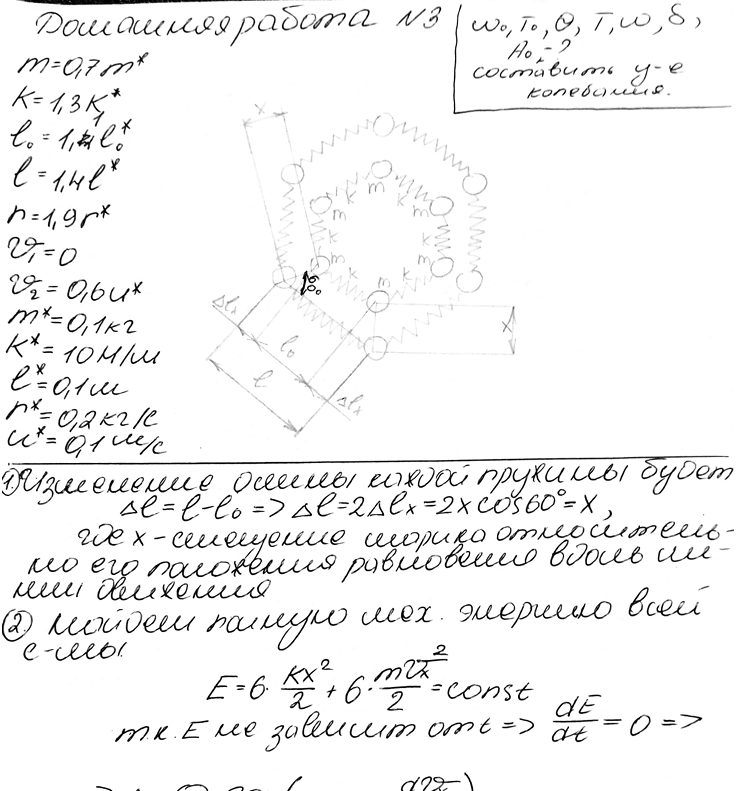 Домашняя работа №3
ω₀, T₀, θ, T, ω, δ,
A₀₂ - ?
составить у-е
колебания.
m=0,7m*
K=1,3K*
l₀=1,1l₀*
l=1,4l*
r=1,9r*
V₁=0
V₂=0,6u*
m*=0,1кг
K*=10Н/м
l*=0,1м
r*=0,2кг/с
u*=0,1м/с
x
m
k
m
k
m
k
m
k
m
k
m
k
60°
Δlₓ
l₀
l
Δlₓ
x
1) Изменение длины каждой пружины будет
Δl=l-l₀ => Δl=2Δlₓ=2xcos60°=x,
где x-смещение шарика относитель-
но его положения равновесия вдоль ли-
нии движения
2) Найдем полную мех. энергию всей
с-мы
E=6·Kx²/2+6·mVₓ²/2=const
т.к. E не зависит от t => dE/dt=0 =>